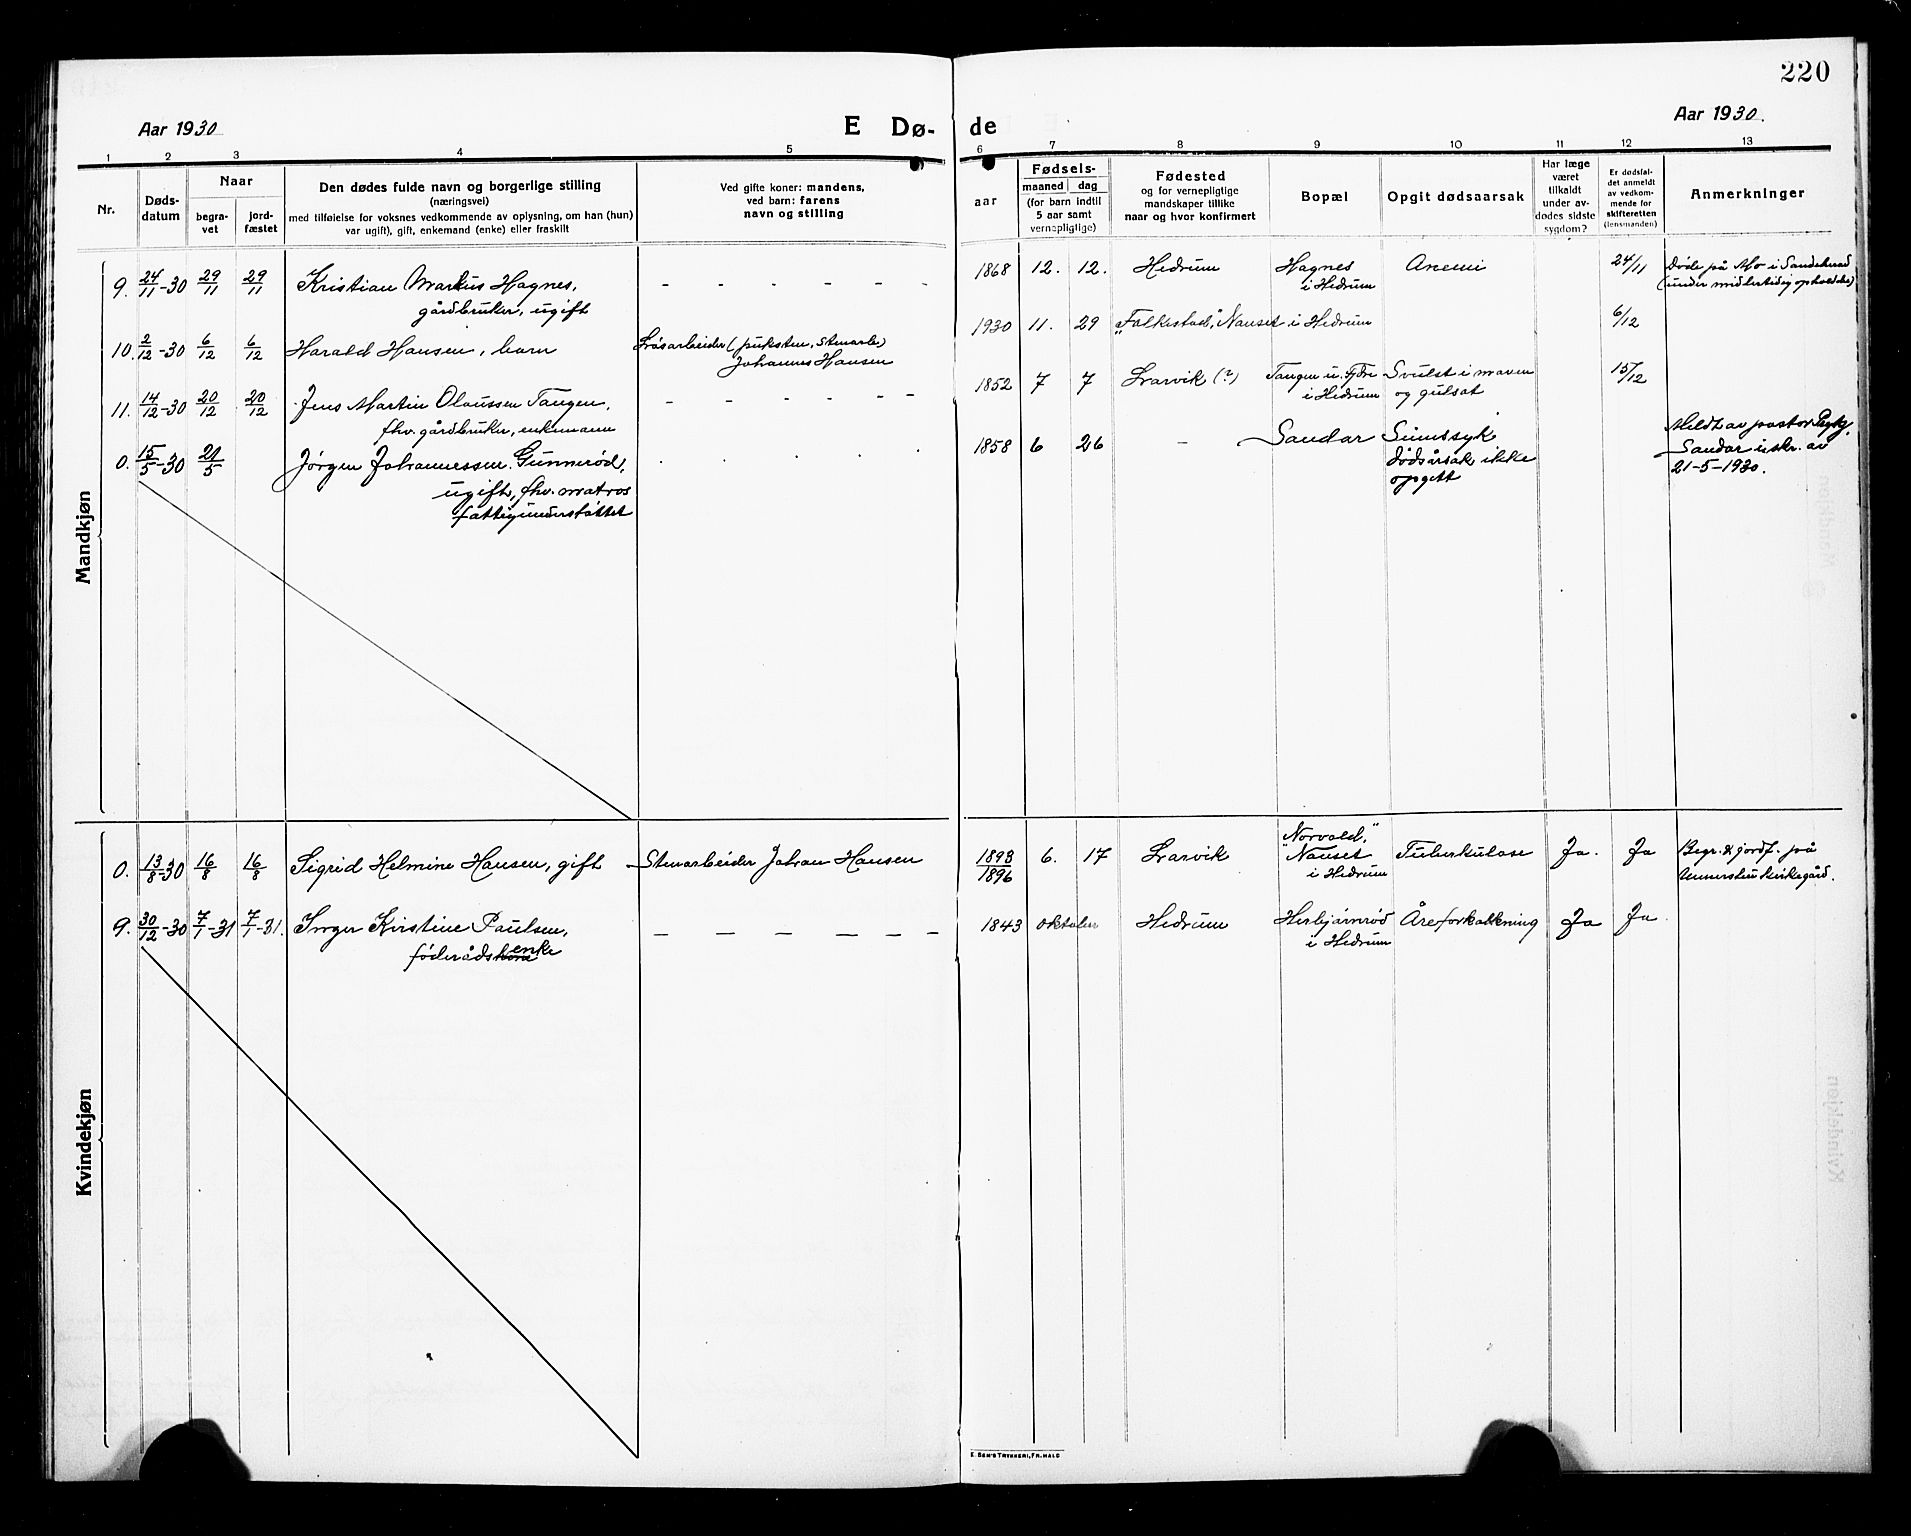 220
Aar 1930
E Dø-
de
Aar 1930.
1 2 3 4 5 6 7 8 9 10 11 12 13
Nr.
Døds-
datum
Naar
begra-
vet
jord-
fæstet
Den dødes fulde navn og borgerlige stilling
(næringsvei)
med tilføielse for voksnes vedkommende av oplysning, om han (hun)
var ugift), gift, enkemand (enke) eller fraskilt
Ved gifte koner: mandens,
ved barn: farens
navn og stilling
Fødsels-
aar
maaned dag
(for barn indtil
5 aar samt
vernepligtige)
Fødested
og for vernepligtige
mandskaper tillike
naar og hvor konfirmert
Bopæl
Opgit dødsaarsak
Har læge
været
tilkaldt
under av-
dødes sidste
sygdom?
Er dødsfal-
det anmeldt
av vedkom-
mende for
skifteretten
(lensmanden)
Anmerkninger
Mandkjøn
9. 24/11-30 29/11 29/11 Kristian Markus Hagnes,
gårdbruker, ugift
- - - - - -
1868 12. 12. Hedrum
Hagnes
i Hedrum
Anemi
24/11
Døde på Mo i Sandeherad
(under midlertidig ophold der)
10. 2/12-30 6/12 6/12 Harald Hansen, barn
Johannes Hansen
1930 11. 29 "Folkestad", Nauset i Hedrum
6/12
11. 14/12-30 20/12 20/12 Jens Martin Olaussen Tangen,
fhv. gårdbruker, enkemann
- - - - - -
1852 7 7 Larvik (?)
Tangen u. Fjære
i Hedrum
Svulst i maven
og gulsot
15/12
0. 15/5-30 21/5 Jørgen Johannessen Gunnerød,
ugift, fhv. matros
fattigunderstøttet
1858 6 26 -
Sandar
Sinnssyk
dødsårsak ikke
opgitt
Meldt av pastor
Sandar i skr. av
21-5-1930.
Kvindekjøn
0. 13/8-30 16/8 16/8 Sigrid Helmine Hansen, gift
Stenarbeider Johan Hansen
1893/1896 6. 17 Larvik
"Norvald,"
Nauset
i Hedrum
Tuberkulose
Ja. Ja
Begr. & jordf. på
Undersbo kirkegård.
9. 30/12-30 7/1-31 7/1-31. Inger Kirstine Paulsen,
føderådskone enke
- - - - - -
1843 oktober Hedrum
Herbjørnrød
i Hedrum
Åreforkalkning
Ja Ja
E. Sem's Trykkeri, Fr.hald